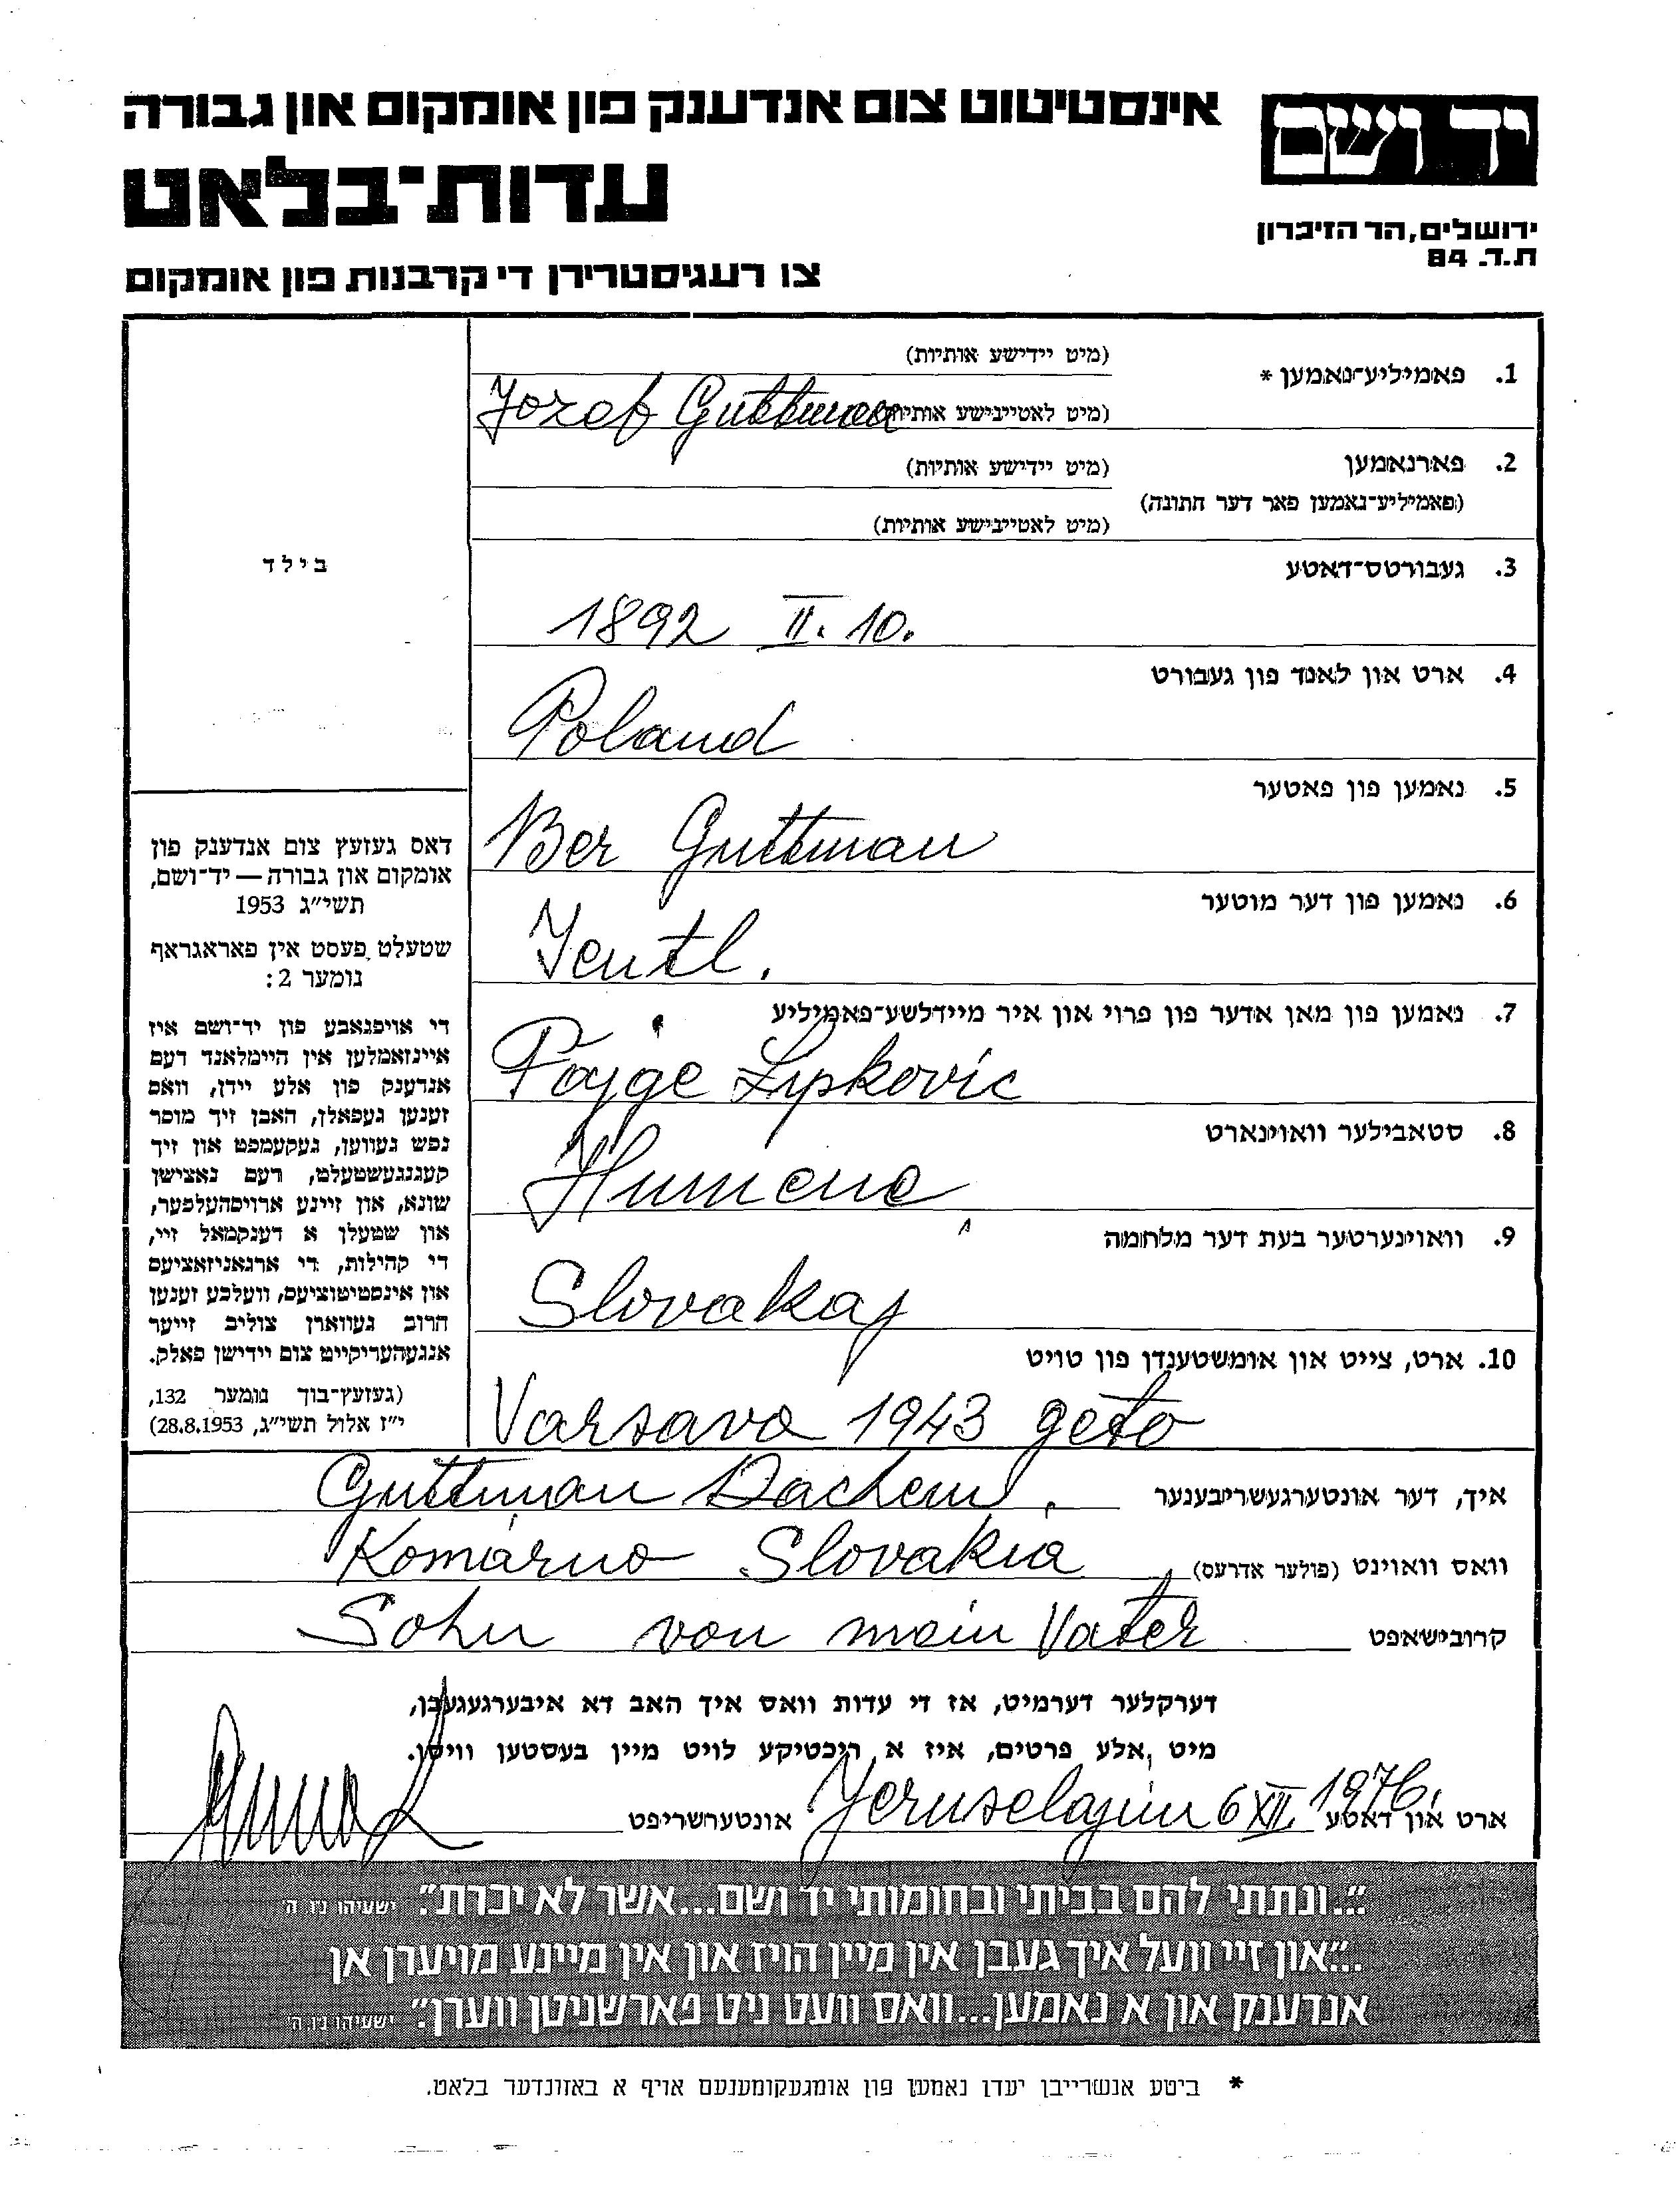 אינסטיטוט צום אנדענק פון אומקום און גבורה
יד ושם
עדות־בלאט
ירושלים, הר הזיכרון
ת.ד. 84
צו רעגיסטרירן די קרבנות פון אומקום
1. פאמיליע־נאמען *
(מיט יידישע אותיות)
(מיט לאטיינישע אותיות)
Jozef Guttman
2. פארנאמען
(מיט יידישע אותיות)
(פאמיליע־נאמען פאר דער חתונה)
(מיט לאטיינישע אותיות)
בילד
3. געבורטס־דאטע
1892 II. 10.
4. ארט און לאנד פון געבורט
Poland
5. נאמען פון פאטער
Ber Guttman
6. נאמען פון דער מוטער
Jentl.
7. נאמען פון מאן אדער פון פרוי און איר מיידלשע־פאמיליע
Fajge Lipkovic
8. סטאבילער וואוינארט
Humene
9. וואוינערטער בעת דער מלחמה
Slovakaj
10. ארט, צייט און אומשטענדן פון טויט
Varsava 1943 geto
דאס געזעץ צום אנדענק פון
אומקום און גבורה — יד־ושם,
תשי״ג 1953
שטעלט פעסט אין פאראגראף
נומער 2:
די אויפגאבע פון יד־ושם איז
איינזאמלען אין היימלאנד דעם
אנדענק פון אלע יידן, וואס
זענען געפאלן, האבן זיך מוסר
נפש געווען, געקעמפט און זיך
קעגנגעשטעלט, דעם נאצישן
שונא, און זיינע ארויסהעלפער,
און שטעלן א דענקמאל זיי,
די קהילות, די ארגאניזאציעס
און אינסטיטוציעס, וועלכע זענען
חרוב געווארן צוליב זייער
אנגעהעריקייט צום יידישן פאלק.
(געזעץ־בוך נומער 132,
י״ז אלול תשי״ג, 28.8.1953)
איך, דער אונטערגעשריבענער Guttman
וואס וואוינט (פולער אדרעס) Komárno Slovakia
קרובישאפט Sohn von mein Vater
דערקלער דערמיט, אז די עדות וואס איך האב דא איבערגעגעבן,
מיט אלע פרטים, איז א ריכטיקע לויט מיין בעסטען וויסן.
ארט און דאטע Jeruselajim 6 XII. 1976. אונטערשריפט
״...ונתתי להם בביתי ובחומותי יד ושם...אשר לא יכרת״. ישעיהו נ״ו ה׳
...״און זיי וועל איך געבן אין מיין הויז און אין מיינע מויערן אן
אנדענק און א נאמען...וואס וועט ניט פארשניטן ווערן״. ישעיהו נ״ו ה׳
* ביטע אנשרייבן יעדן נאמען פון אומגעקומענעם אויף א באזונדער בלאט.